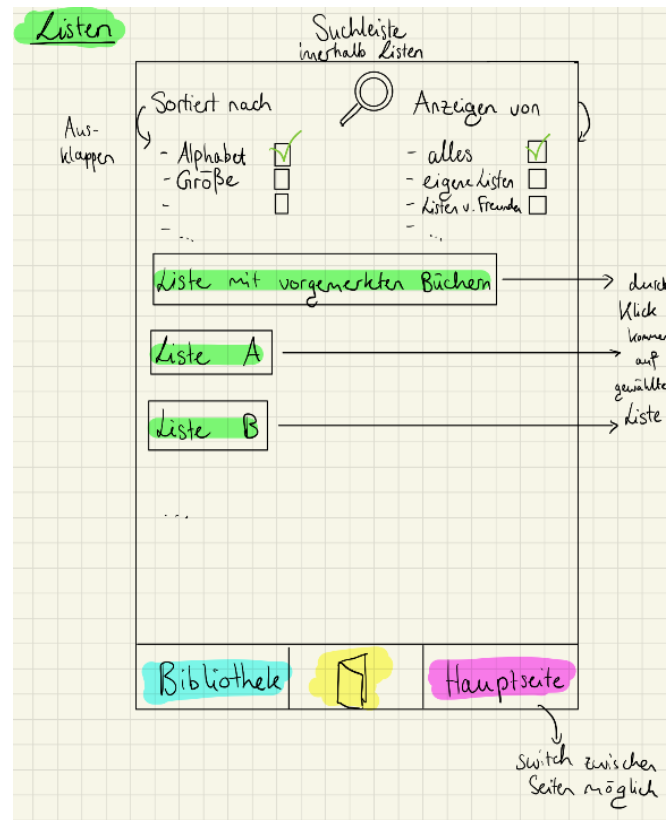 Listen
Suchleiste
innerhalb Listen
Sortiert nach
Anzeigen von
Aus-
klappen
- Alphabet
- Größe
-
- ...
- alles
- eigene Listen
- Listen v. Freunden
- ...
Liste mit vorgemerkten Büchern
Liste A
Liste B
...
durch
Klick
kommen
auf
gewählte
Liste
Bibliothek
Hauptseite
switch zwischen
Seiten möglich